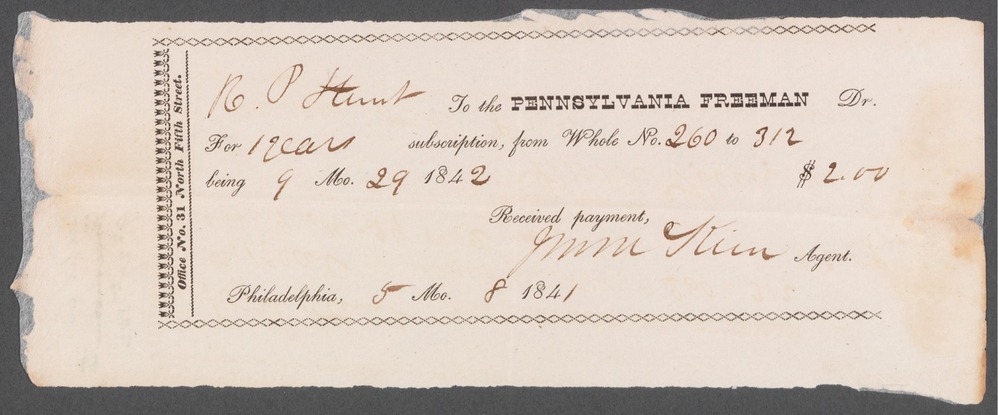 Office No. 31 North Fifth Street.
R. P Hunt To the PENNSYLVANIA FREEMAN Dr.
For 1 years subscription, from Whole No. 260 to 312
being 9 Mo. 29 1842 $ 2.00
Received payment,
Jno M Kim Agent.
Philadelphia, 5 Mo. 8 1841